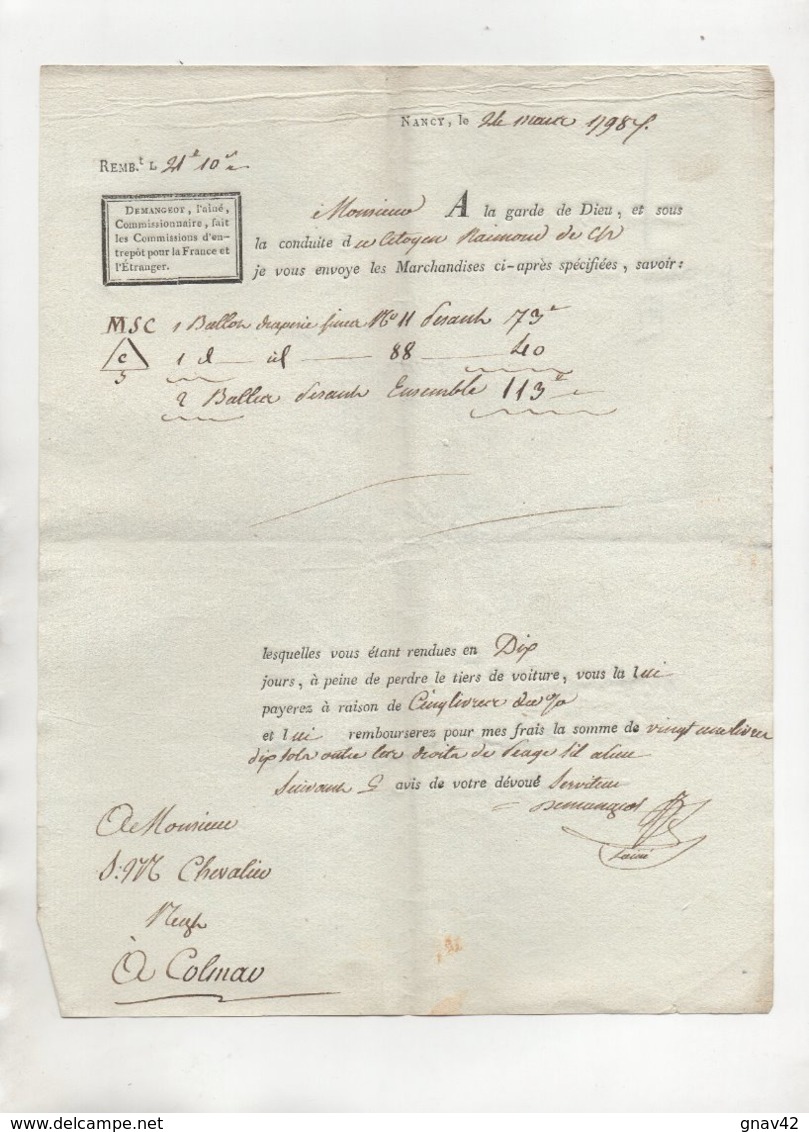 NANCY, le 24 mars 1798.
REMB.t L 21# 10s
DEMANGEOT, l'aîné,
Commissionnaire, fait
les Commissions d'en-
trepôt pour la France et
l'Étranger.
Monsieur A la garde de Dieu, et sous
la conduite du Citoyen Raimond de
je vous envoye les Marchandises ci-après spécifiées, savoir:
MSC 1 Ballot draperie No 11 Pesant 73#
C 1 d id 88 40
3
2 Balles Pesant Ensemble 113#
lesquelles vous étant rendues en Dix
jours, à peine de perdre le tiers de voiture, vous la lui
payerez à raison de Cinq livres du %
et lui rembourserez pour mes frais la somme de vingt une livres
dix sols outre les droits de Peage s'il a lieu
Suivant avis de votre dévoué Serviteur
Demangeot
L'ainé
A Monsieur
Chevalier
A Colmar
delcampe.net
gnav42